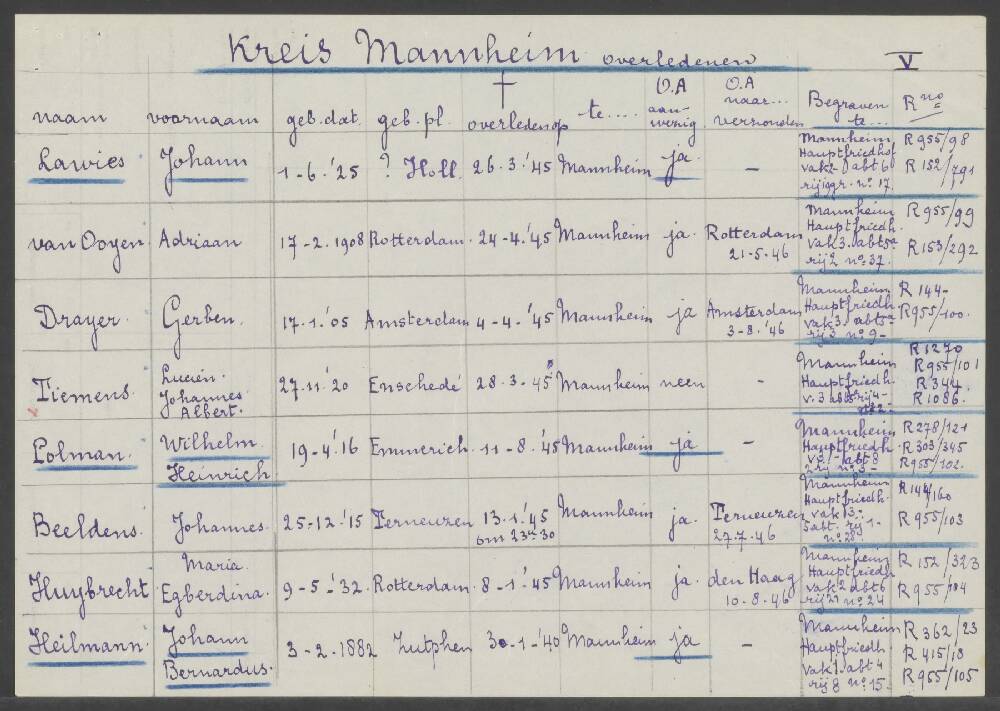 Kreis Mannheim overledenen V
naam voornaam geb.dat. geb.pl. † overleden op te.... O.A aanwezig. O.A naar... verzonden Begraven te... R no
Lawies Johann 1-6.'25 ? Holl. 26.3.'45 Mannheim ja — Mannheim R 955/98
Hauptfriedhof
vak 2 abt 6 R 152/791
gr. no 17.
van Ooyen Adriaan 17-2.1908 Rotterdam. 24-4.'45 Mannheim ja. Rotterdam Mannheim R 955/99
21-5.46 Hauptfriedh.
vak 3. abt 5a R 153/292
rij 2 no 37.
Drayer. Gerben. 17.1.'05 Amsterdam 4-4.'45 Mannheim ja Amsterdam Mannheim R 144-
3-8.'46 Hauptfriedh R 955/100.
vak 3. abt 5a
rij 3 no 9-
Tiemens. Lucien. Johannes Albert. 27.11.'20 Enschedé 28.3-45 Mannheim neen - Mannheim R 1270
Hauptfriedh. R 955/101
v. 3 abt 5 rij 4- R 344.
R 1086.
Polman. Wilhelm. Heinrich 19-4.'16 Emmerich. 11-8.'45 Mannheim ja — Mannheim R 278/121
Hauptfriedh R 303/345
abt 8 R 955/102.
Beeldens. Johannes. 25-12.'15 Terneuzen 13.1.'45 Mannheim ja. Terneuzen Mannheim R 144/160
om 23 u 30 27.7.46 Hauptfriedh.
vak 13.- R 955/103
5 abt. rij 1-
no 28.
Huybrecht Maria. Egberdina. 9-5-'32. Rotterdam. 8-1-'45 Mannheim ja. den Haag Mannheim R 152/323
10.8.'46 Hauptfriedh
vak 2 abt 6 R 955/104
rij 21 no 24
Heilmann. Johann Bernardus. 3-2.1882 Zutphen 30-1-'40 Mannheim ja — Mannheim R 362/23
Hauptfriedh R 415/18
vak 1. abt 4 R 955/105
rij 8 no 15.